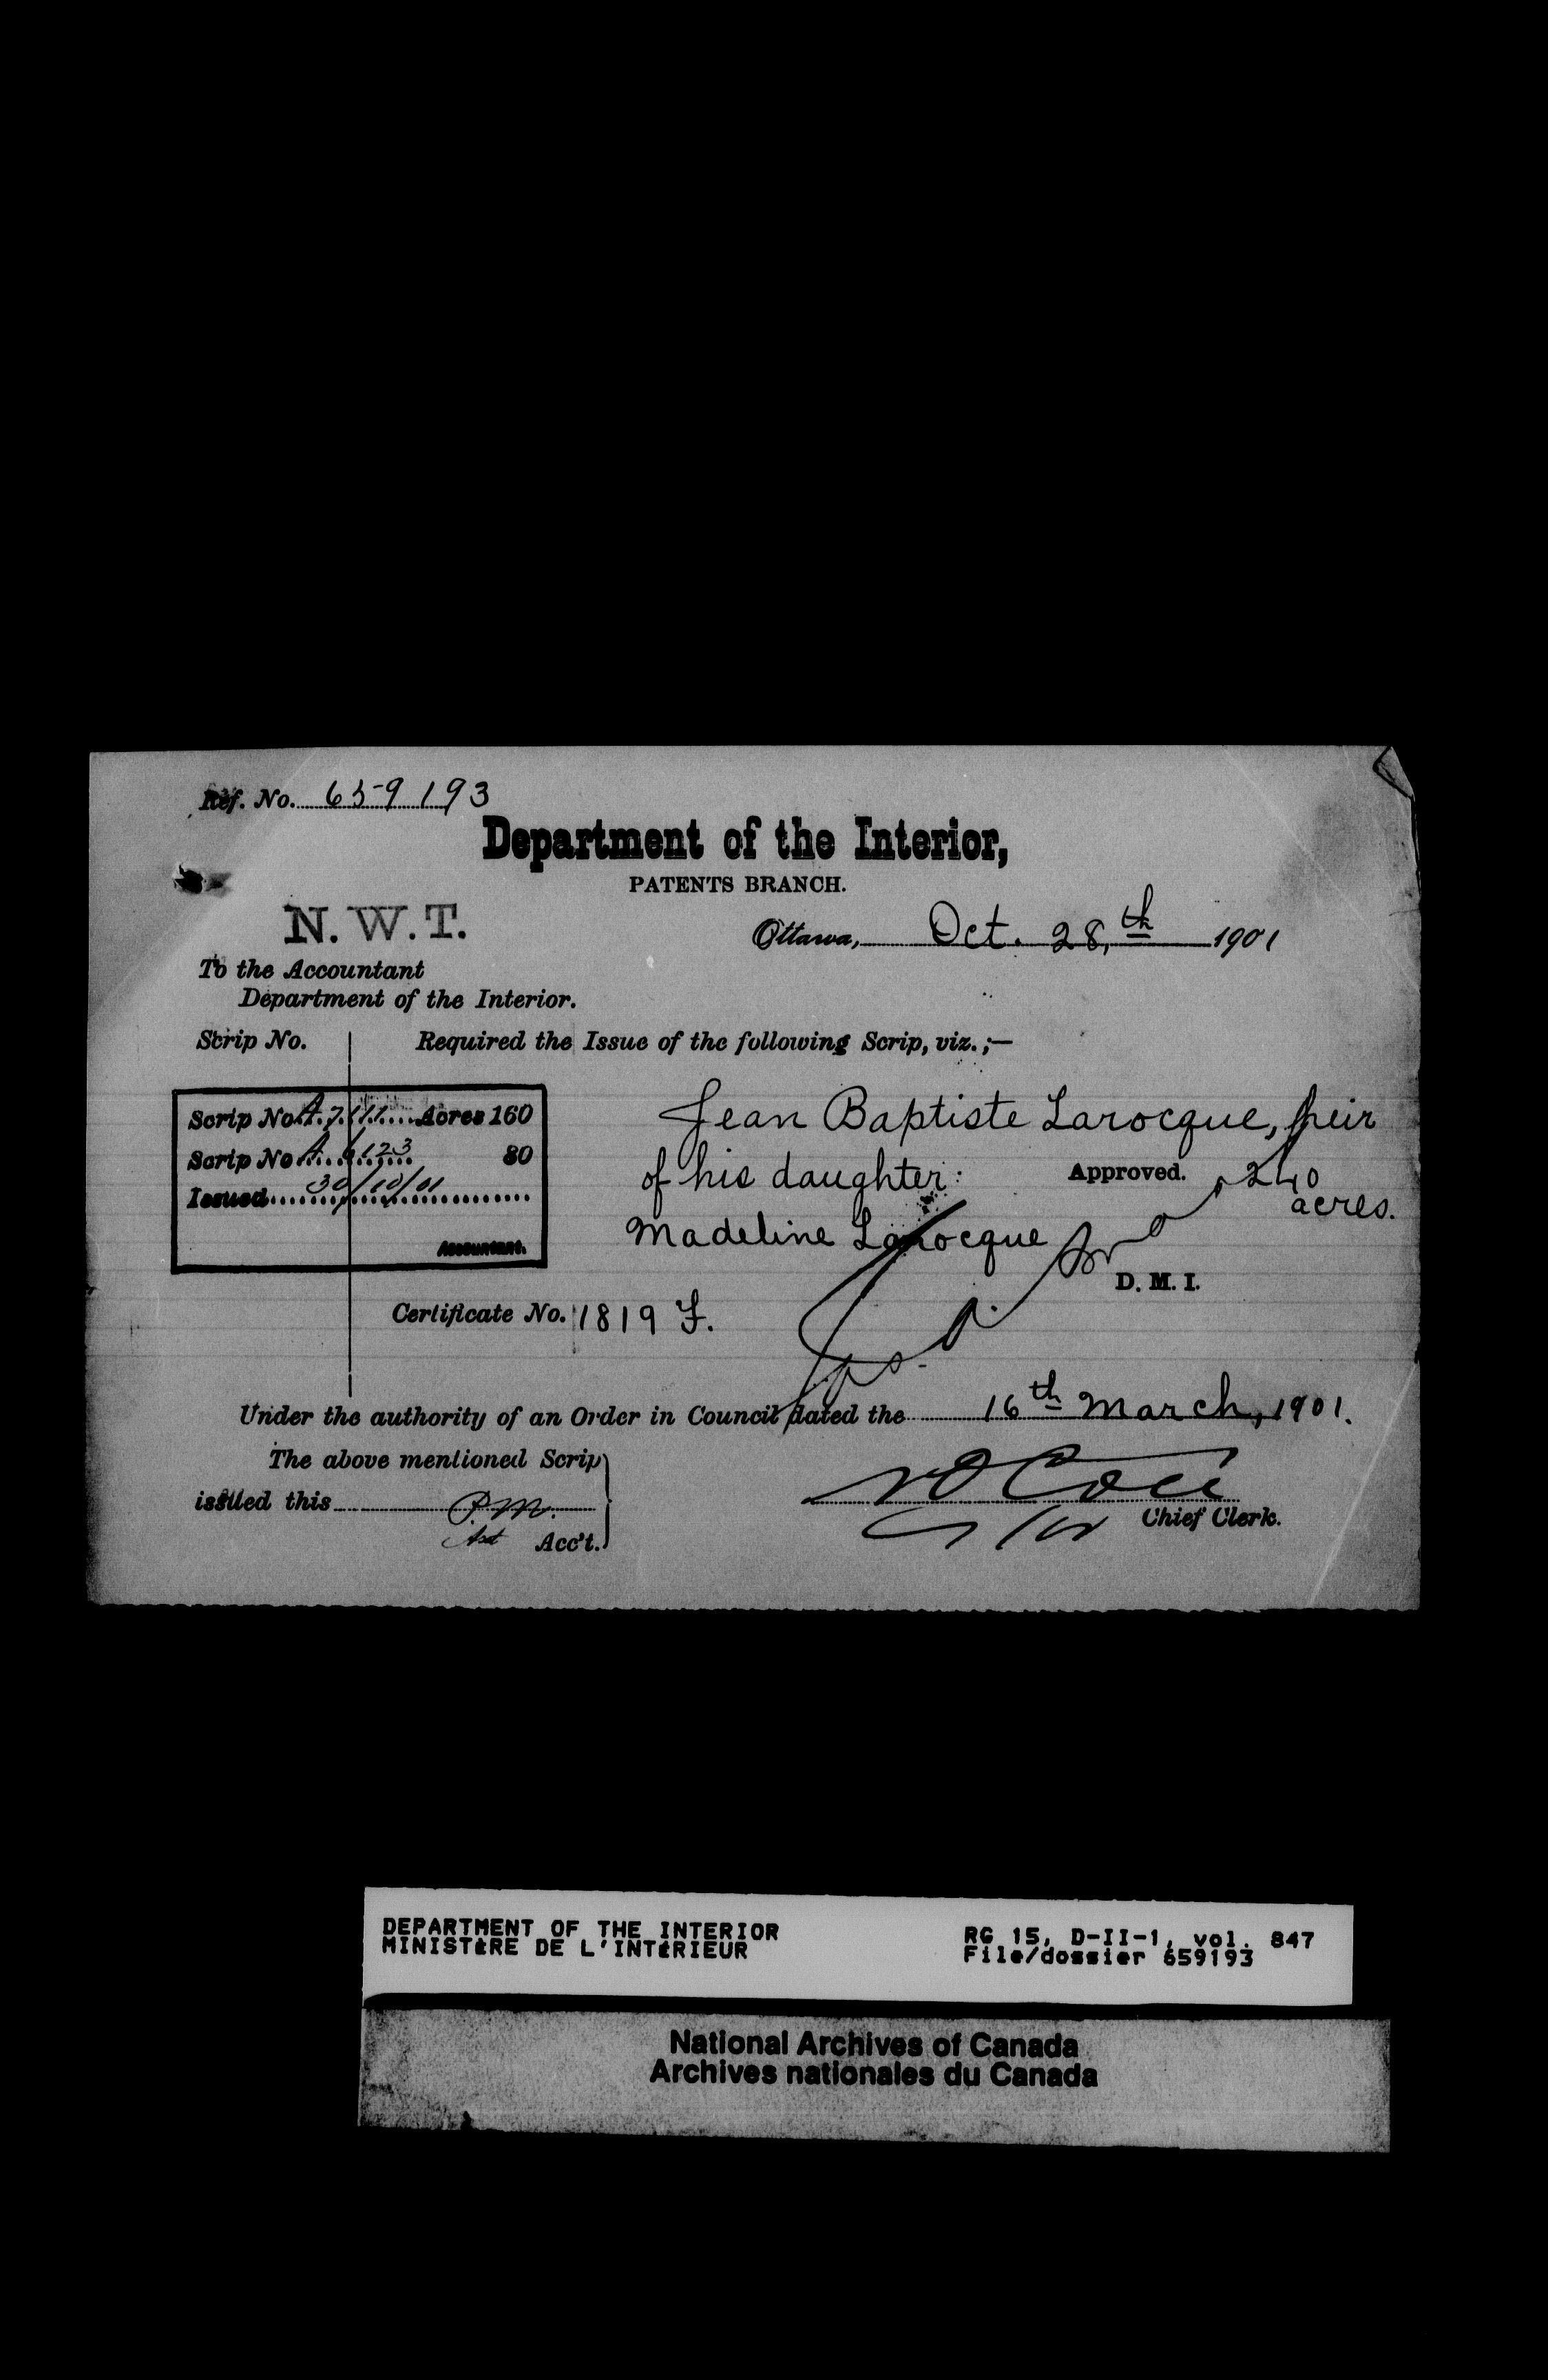 Ref. No. 659193
Department of the Interior,
PATENTS BRANCH.
N.W.T.
Ottawa, Oct. 28,th 1901
To the Accountant
Department of the Interior.
Scrip No. Required the Issue of the following Scrip, viz.;—
Scrip No. Acres 160
Scrip No 80
Issued 30/10/01
Accountant.
Jean Baptiste Larocque, heir
of his daughter: Approved. 240
acres.
Madeline Larocque
D. M. I.
Certificate No. 1819 F.
Under the authority of an Order in Council dated the 16th March, 1901.
The above mentioned Scrip
issued this P.M.
Asst Acc't.
Chief Clerk.
DEPARTMENT OF THE INTERIOR
MINISTÈRE DE L'INTÉRIEUR
RG 15, D-II-1, vol. 847
File/dossier 659193
National Archives of Canada
Archives nationales du Canada